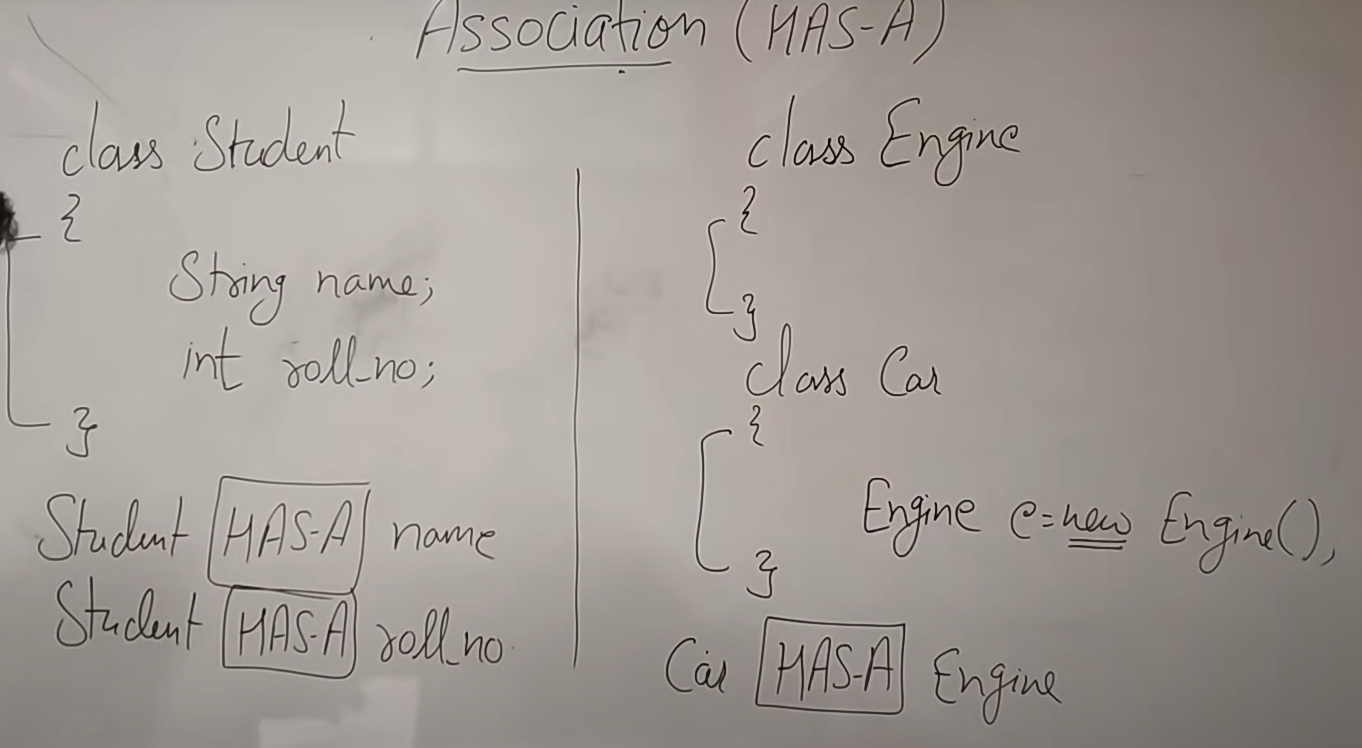 Association (HAS-A)
class Student
{
String name;
int roll_no;
}
Student HAS-A name
Student HAS-A roll_no
class Engine
{
}
class Car
{
Engine e=new Engine(),
}
Car HAS-A Engine